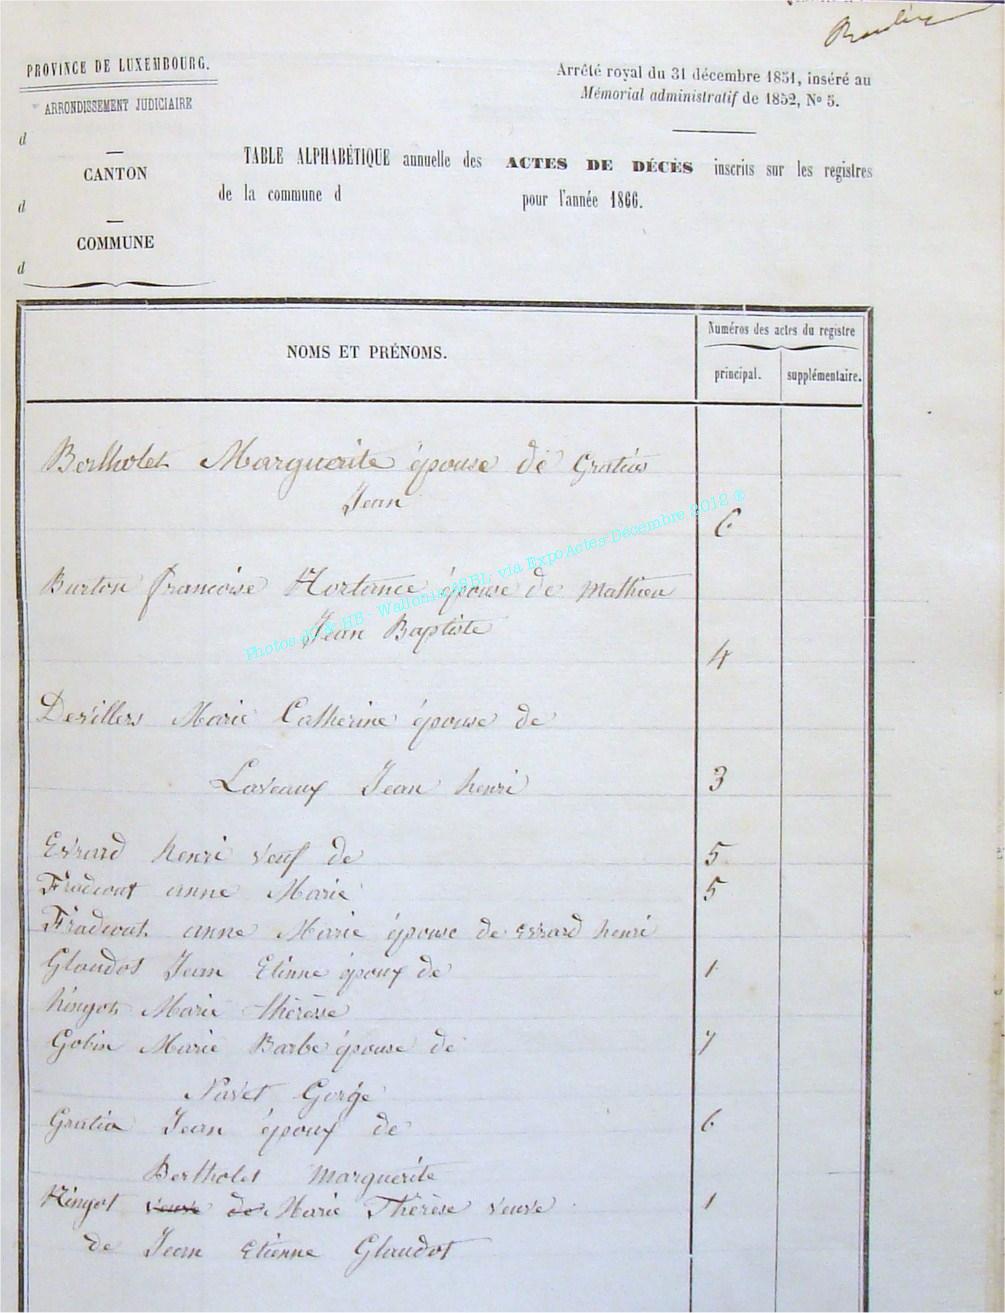 PROVINCE DE LUXEMBOURG.
ARRONDISSEMENT JUDICIAIRE
d
CANTON
d
COMMUNE
d
Arrêté royal du 31 décembre 1851, inséré au
Mémorial administratif de 1852, N° 5.
TABLE ALPHABÉTIQUE annuelle des ACTES DE DÉCÈS inscrits sur les registres
de la commune d pour l'année 1866.
NOMS ET PRÉNOMS.
Numéros des actes du registre
principal. supplémentaire.
Bertholet Marguerite épouse de Gratia
Jean 6
Burton francoise Hortance épouse de Mathieu
Jean Baptiste 4
Photos JC & HB - Wallonia ASBL, via ExpoActes Décembre 2012 ®
Devillers Marie Catherine épouse de
Laveaux Jean henri 3
Evrard henri veuf de 5
Fradcourt anne Marie 5
Fradcourt anne Marie épouse de Evrard henri
Glaudot Jean Etinne époux de 1
hingot Marie thérèse
Gobin Marie Barbe épouse de 7
Navet Gorge
Gratia Jean époux de 6
Bertholet Marguerite
Hingot veuve de Marie Thérèse veuve 1
de Jean Etienne Glaudot